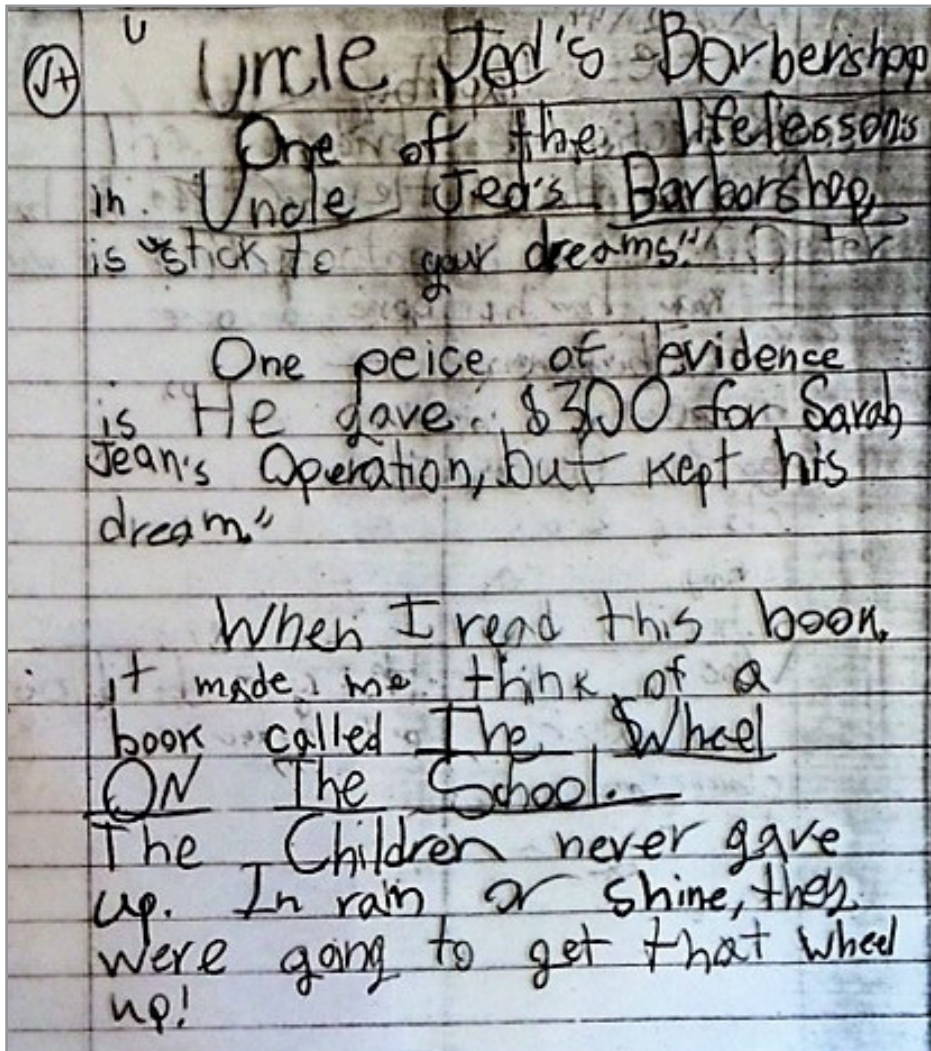 √+
Uncle Jed's Barbershop
One of the lifelessons
in Uncle Jed's Barborshop,
is "stick to your dreams."
One peice of evidence
is He gave $300 for Sarah
Jean's Operation, but kept his
dream."
When I read this book,
it made me think of a
book called The Wheel
ON The School.
The Children never gave
up. In rain or shine, they
were going to get that wheel
up!